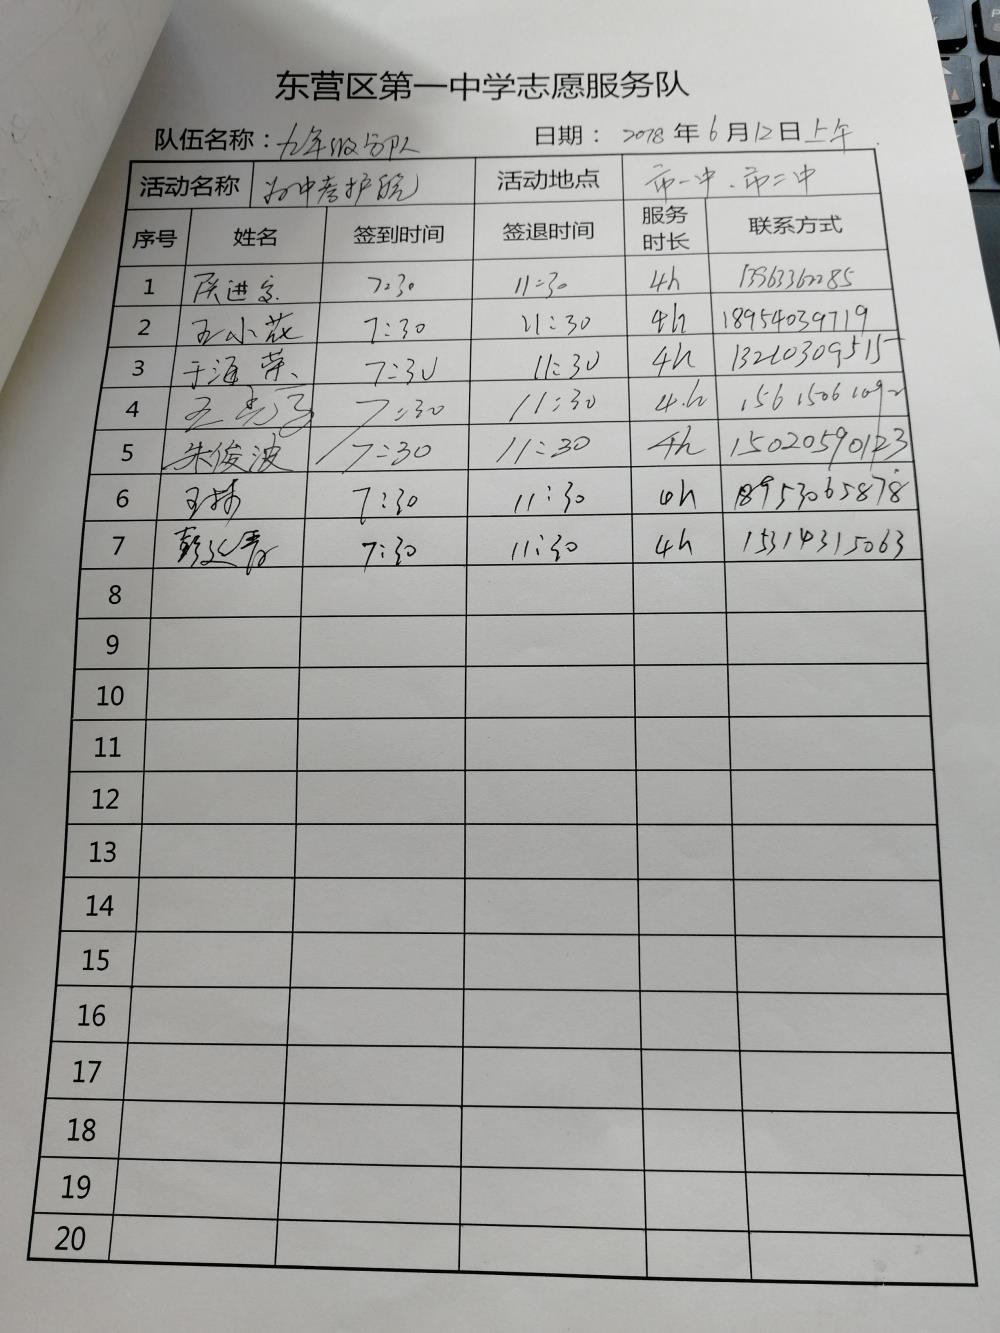 东营区第一中学志愿服务队
队伍名称：九年级分队 日期：2018年6月12日上午
活动名称 为中考护航 活动地点 市一中、市二中
序号 姓名 签到时间 签退时间 服务时长 联系方式
1 进 7:30 11:30 4h 13963362285
2 王小花 7:30 11:30 4h 18954039719
3 于海荣 7:30 11:30 4h 13210309515
4 王 7:30 11:30 4h 15615061092
5 朱俊波 7:30 11:30 4h 15020590123
6 王 7:30 11:30 4h 18953065878
7 彭 7:30 11:30 4h 15314315063
8
9
10
11
12
13
14
15
16
17
18
19
20